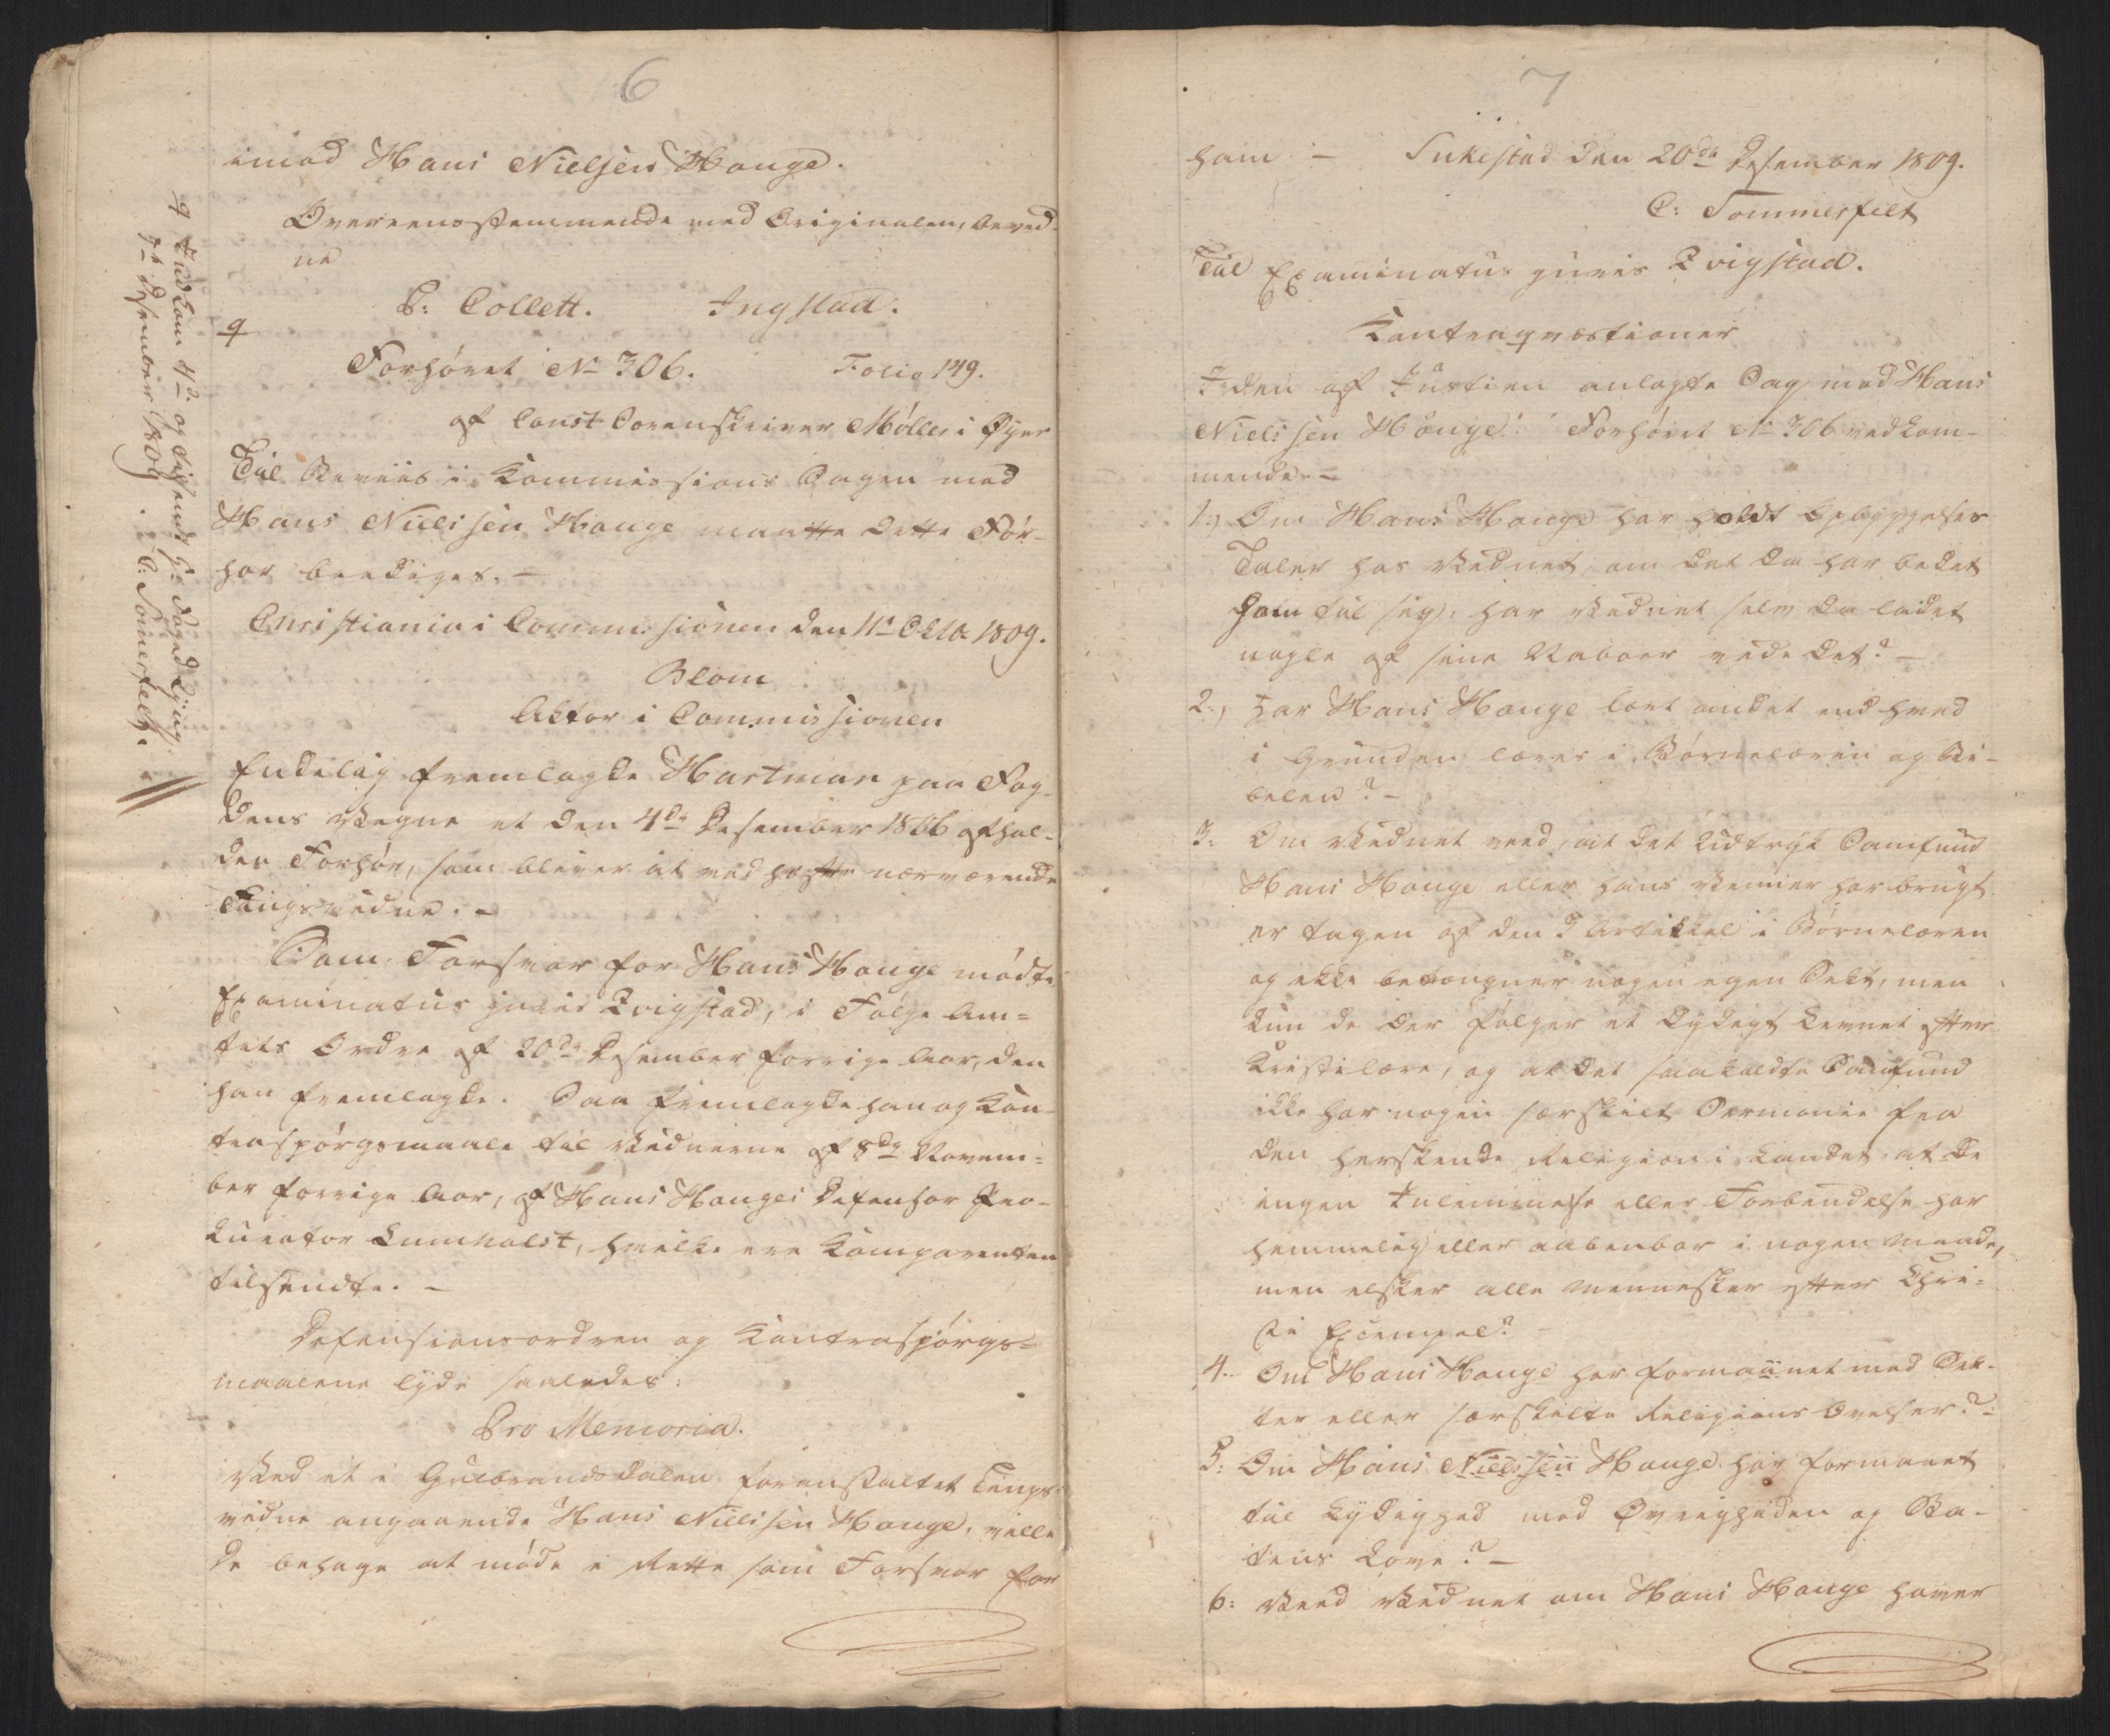 6
imod Hans Nielsen Hauge.
Overeensstemmende med Originalen, bevid-
ne
P: Collett. Ingstad.
Forhøret No 306. Folio 149.
af Const Sorenskriver Møller i Øyer
Til Beviis i Kommissions Sagen mod
Hans Nielsen Hauge maatte dette For-
hør beediges. –
Christiania i Commissionen den 11te Octbr 1809.
Blom
Aktor i Commissionen
Endelig fremlagde Hartman paa Fog-
dens Vegne et den 4de Desember 1806 afhol-
den Forhør, som bliver at vedhefte nærværende
Tingsvidne. –
Som Forsvar for Hans Hauge mødte
Examinatus juris Qvigstad, i Følge Am-
tets Ordre af 20de Desember forrige Aar, den
han fremlagde. Saa fremlagde han og Kon-
traspørgsmaale til Vidnerne af 8de Novem-
ber forrige Aar, af Hans Hauges Defensor Pro-
kurator Lumholst, hvilke ere Komparenten
tilsendte. –
Defensionsordren og Kontraspørgs-
maalene lyde saaledes:
Pro Memoria.
Ved et i Gulbrandsdalen foranstaltet Tings-
vidne angaaende Hans Nielsen Hauge, ville
De behage at møde i Rette som Forsvar for
Indkom 4de og tilsendt Hr. Foged Lyng
9de Desember 1809. C: Somerfelt.
7
ham. – Inkestad den 20de Desember 1809.
C: Sommerfelt
Til Examinatus juris Qvigstad.
Kontraqvæstioner
I den af Justien anlagte Sag mod Hans
Nielssen Hauge. Forhøret No 306 vedkom-
mende. –
1.) Om Hans Hauge har holdt Opbyggelses
Taler hos Vidnet, om det da har bedet
ham til sig, har Vidnet selv da ladet
nogle af sine Naboer vide det? –
2.) Har Hans Hauge lært andet end hvad
i Grunden læres i Børnelæren og Bi-
belen? –
3: Om Vidnet veed, at det Udtryk Samfund
Hans Hauge eller hans Venner har brugt
er tagen af den 3 Artikkel i Børnelæren
og ikke betængner nogen egen Sekt, men
kun de der følger et lydigt Levnet efter
Kristilære, og at det saakaldte Samfund
ikke har nogen særskilt Sermonie fra
den herskende Religion i Landet, at de
ingen Indlemmelse eller Forbindelse har
hemmelig eller aabenbar i nogen Maade,
men elsker alle Mennesker efter Chri-
sti Exempel? –
4. Om Hans Hauge har formaanet mod Sek-
ter eller særskilte Religions Øvelser? –
5: Om Hans Nielssen Hauge har formanet
til Lydighed mod Øvrigheden og Sta-
tens Love? –
6: Veed Vidnet om Hans Hauge haver